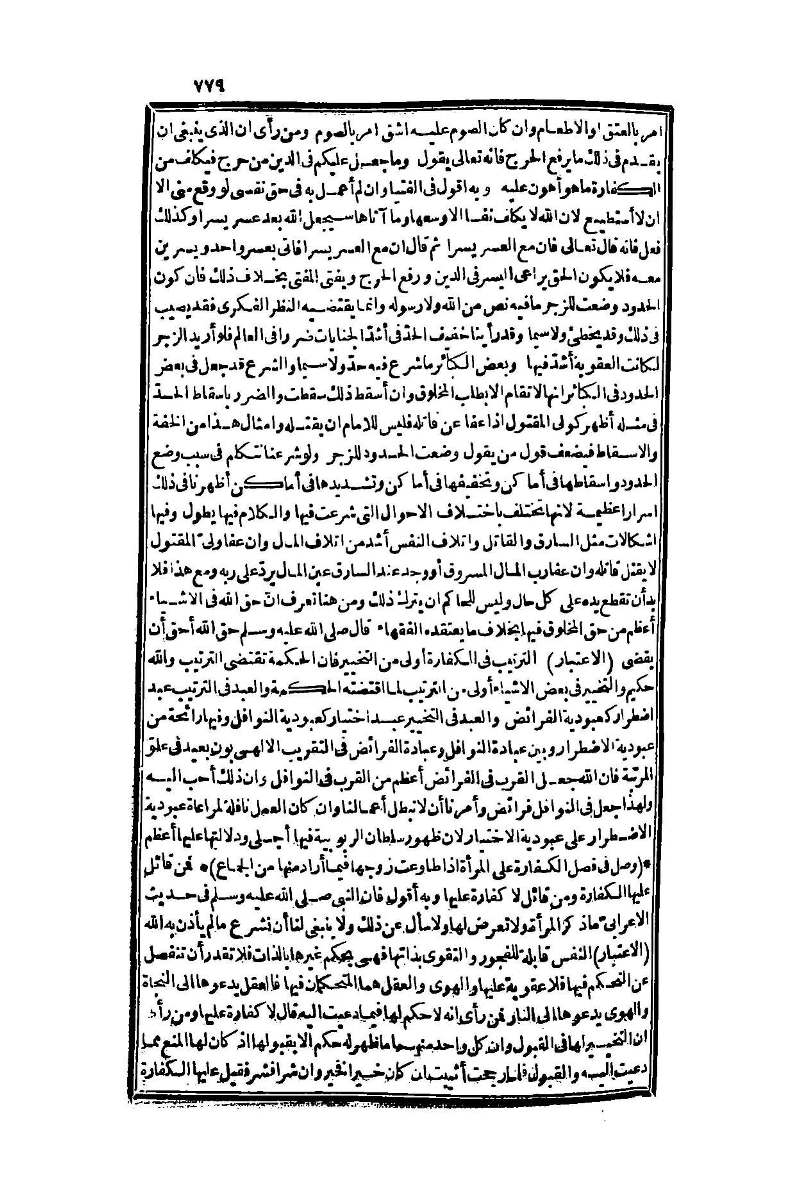 ٧٧٩
امر بالعتق اوالاطعام وان كان الصوم عليه اشق امر بالصوم ومن رأى ان الذى ينبغى ان
يقدم فى ذلك ما يرفع الحرج فانه تعالى يقول وما جعل عليكم فى الدين من حرج فيكلف من
الكفارة ما هو أهون عليه وبه اقول فى الفتيا وان لم أعمل به فى حق نفسى لو وقع منى الا
ان لا أستطيع لان الله لا يكلف نفسا الا وسعها وما آتاها سيجعل الله بعد عسر يسرا وكذلك
فعل فانه قال تعالى فان مع العسر يسرا ثم قال ان مع العسر يسرا فاتى بعسر واحد ويسرين
معه فلا يكون الحق يراعى اليسر فى الدين ورفع الحرج ويفتى المفتى بخلاف ذلك فان كون
الحدود وضعت للزجر ما فيه نص من الله ولا رسوله وانما يقتضيه النظر الفكرى فقد يصيب
فى ذلك وقد يخطئ ولا سيما وقد رأينا خفيف الحد فى أشد الجنايات ضررا فى العالم فلو أريد الزجر
لكانت العقوبة أشد فيها وبعض الكبائر ما شرع فيه حد ولا سيما والشرع قد جعل فى بعض
الحدود فى الكبائر انها لا تقام الا بطلب المخلوق وان أسقط ذلك سقطت والضرر باسقاط الحد
فى مثله أظهر كولى المقتول اذا عفا عن قاتله فليس للامام ان يقتله وامثال هذا من الخفة
والاسقاط فيضعف قول من يقول وضعت الحدود للزجر ولو شرعنا نتكلم فى سبب وضع
الحدود واسقاطها فى أماكن وتخفيفها فى أماكن وتشديدها فى أماكن أظهرنا فى ذلك
اسرارا عظيمة لانها تختلف باختلاف الاحوال التى شرعت فيها والكلام فيها يطول وفيها
اشكالات مثل السارق والقاتل واتلاف النفس أشد من اتلاف المال وان عفا ولى المقتول
لا يقتل قاتله وان عفا رب المال المسروق أو وجد عند السارق عين المال يرد على ربه ومع هذا فلا
بد أن تقطع يده على كل حال وليس للحاكم ان يترك ذلك ومن هنا تعرف ان حق الله فى الاشياء
أعظم من حق المخلوق فيها بخلاف ما يعتقده الفقهاء قال صلى الله عليه وسلم حق الله أحق أن
يقضى (الاعتبار) الترتيب فى الكفارة أولى من التخيير فان الحكمة تقتضى الترتيب والله
حكيم والتخيير فى بعض الاشياء أولى من الترتيب لما اقتضته الحكمة والعبد فى الترتيب عبد
اضطرار كعبودية الفرائض والعبد فى التخيير عبد اختيار كعبودية النوافل وفيها رائحة من
عبودية الاضطرار وبين عبادة النوافل وعبادة الفرائض فى التقريب الالهى بون بعيد فى علو
المرتبة فان الله جعل القرب فى الفرائض أعظم من القرب فى النوافل وان ذلك أحب اليه
ولهذا جعل فى النوافل فرائض وأمرنا أن لا نبطل أعمالنا وان كان العمل نافلة لمراعاة عبودية
الاضطرار على عبودية الاختيار لان ظهور سلطان الربوبية فيها أجلى ودلالتها عليها أعظم
*(وصل فى فصل الكفارة على المرأة اذا طاوعت زوجها فيما أراد منها من الجماع)* فمن قائل
عليها الكفارة ومن قائل لا كفارة عليها وبه أقول فان النبى صلى الله عليه وسلم فى حديث
الاعرابى ما ذكر المرأة ولا تعرض لها ولا سأل عن ذلك ولا ينبغى لنا أن نشرع ما لم يأذن به الله
(الاعتبار) النفس قابلة للفجور والتقوى بذاتها فهى بحكم غيرها بالذات فلا تقدر أن تنفصل
عن التحكم فيها فلا عقوبة عليها والهوى والعقل هما المتحكمان فيها فالعقل يدعوها الى النجاة
والهوى يدعوها الى النار فمن رأى انه لا حكم لها فيما دعيت اليه قال لا كفارة عليها ومن رأى
ان التخيير لها فى القبول وان كل واحد منهما ما ظهر له حكم الا بقبولها اذ كان لها المنع مما
دعيت اليه والقبول فلما رجحت أثيبت ان كان خيرا فخير وان شرا فشر فقيل عليها الكفارة